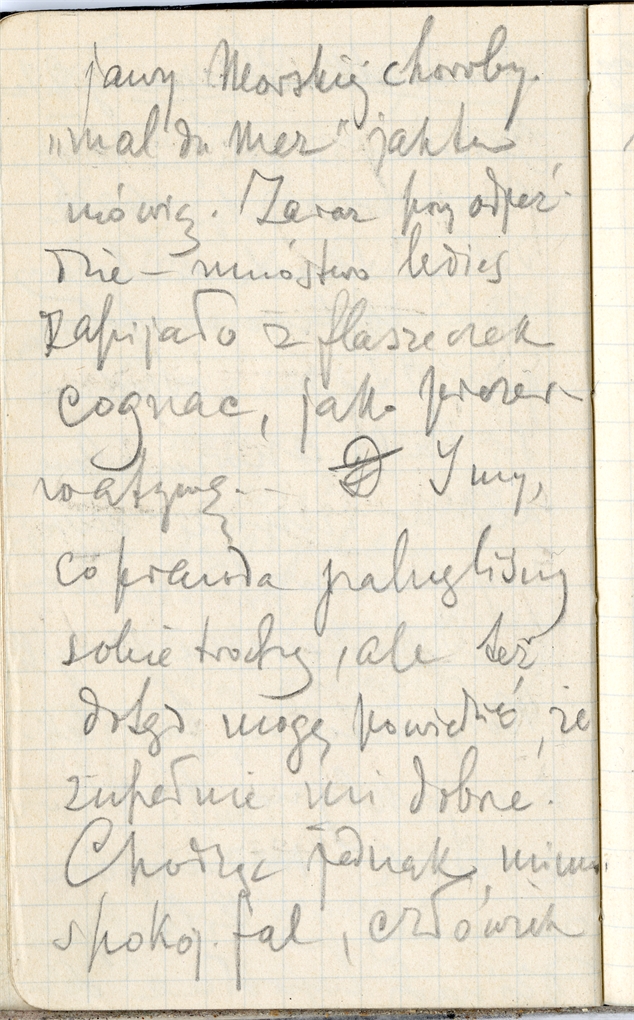 jawy Morskiej choroby.
„mal du Mer" jak tu
mówią. Zaraz przy odjeź-
dzie – mnóstwo ledies
zapijało z flaszeczek
Cognac, jako prezer-
watywę. – I my,
co prawda golnęliśmy
sobie trochę, ale też
dotąd mogę powiedzieć, że
zupełnie mi dobrze.
Chodząc jednak, mimo
spokoj. fal, człowiek